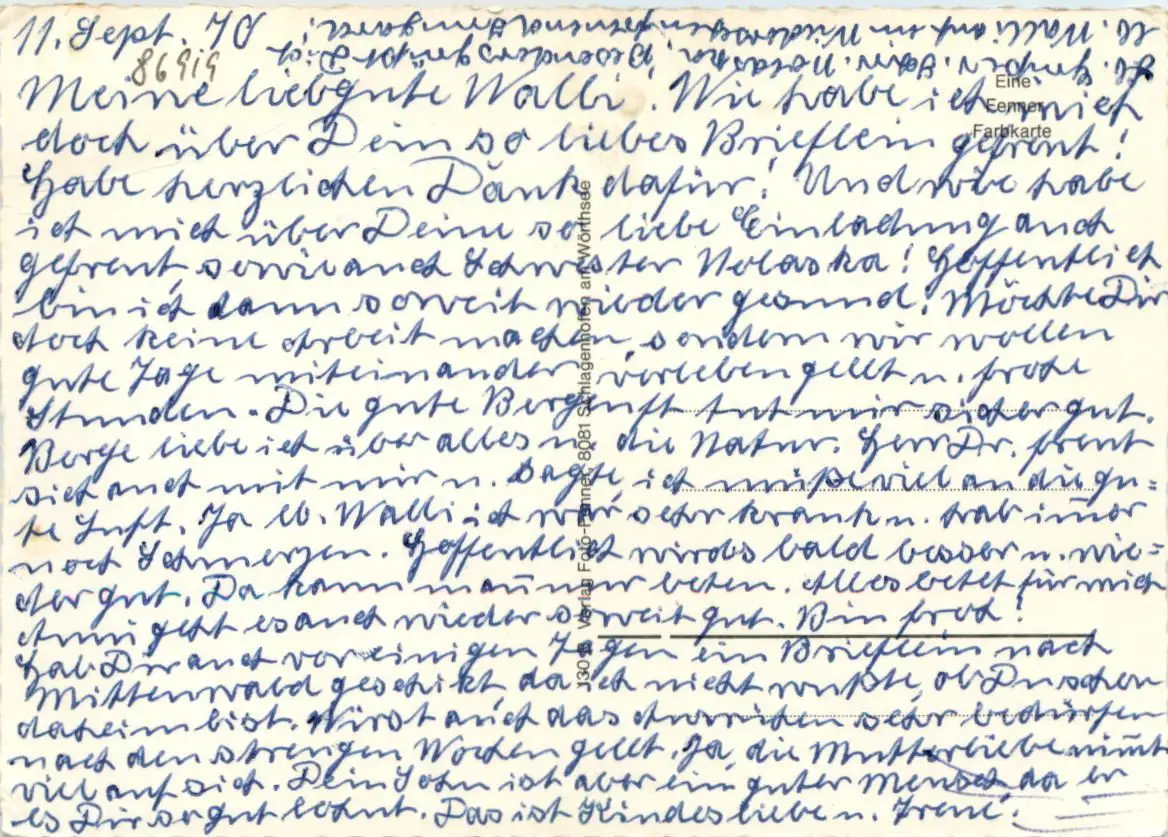 11. Sept. 70
86919
Eine
Fenner
Farbkarte
Meine liebgute Walli. Wie habe ich mich
doch über Dein so liebes Brieflein gefreut!
Habe herzlichen Dank dafür! Und wie habe
ich mich über Deine so liebe Einladung auch
gefreut, sowie auch Schwester Nolaska! Hoffentlich
bin ich dann soweit wieder gesund! Möchte Dir
doch keine Arbeit machen, sondern wir wollen
gute Tage miteinander verleben gellt u. frohe
Stunden. Die gute Bergluft tut mir sicher gut.
Berge liebe ich über alles u. die Natur. Herr Dr. freut
sich auch mit mir u. sagte, ich müße viel an die gu-
te Luft. Ja lb. Walli ich war sehr krank u. hab im̄er
noch Schmerzen. Hoffentlich wirds bald besser u. wie-
der gut. Da kann man nur beten. Alles betet für mich
geht es auch wieder soweit gut. Bin froh!
Hab Dir auch vor einigen Tagen ein Brieflein nach
Mittenwald geschikt da ich nicht wußte, ob Du schon
daheim bist. Wirst auch das sehr bedürfen
nach den strengen Wochen gellt. Ja, die Mutterliebe nim̄t
viel auf sich. Dein Sohn ist aber ein guter Mensch da er
es Dir so gut lohnt. Das ist Kindesliebe u. Treue!
Besonders grüßt Dich
lb. Walli auf ein Wiedersehen freuen
J301 Verlag Foto-Fenner, 8081 Schlagenhofen am Wörthsee